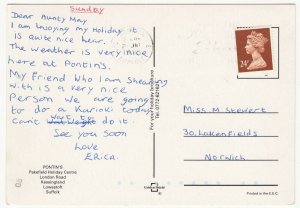 Sunday
Dear Aunty May
I am Inuoying my Holiday it
is quite nice hear.
The Weather is Very nice
here at Pontin's.
My Friend Who I am Shearing
With is a very nice
Person we are going
to do a Karioki today
Can't Wate to
do it.
See you soon
Love
Erica.
PONTIN'S
Pakefield Holiday Centre
London Road
Kessingland
Lowestoft
Suffolk
24
Miss M Stewert
30, Lakenfields
Norwich
Printed in the E.E.C.